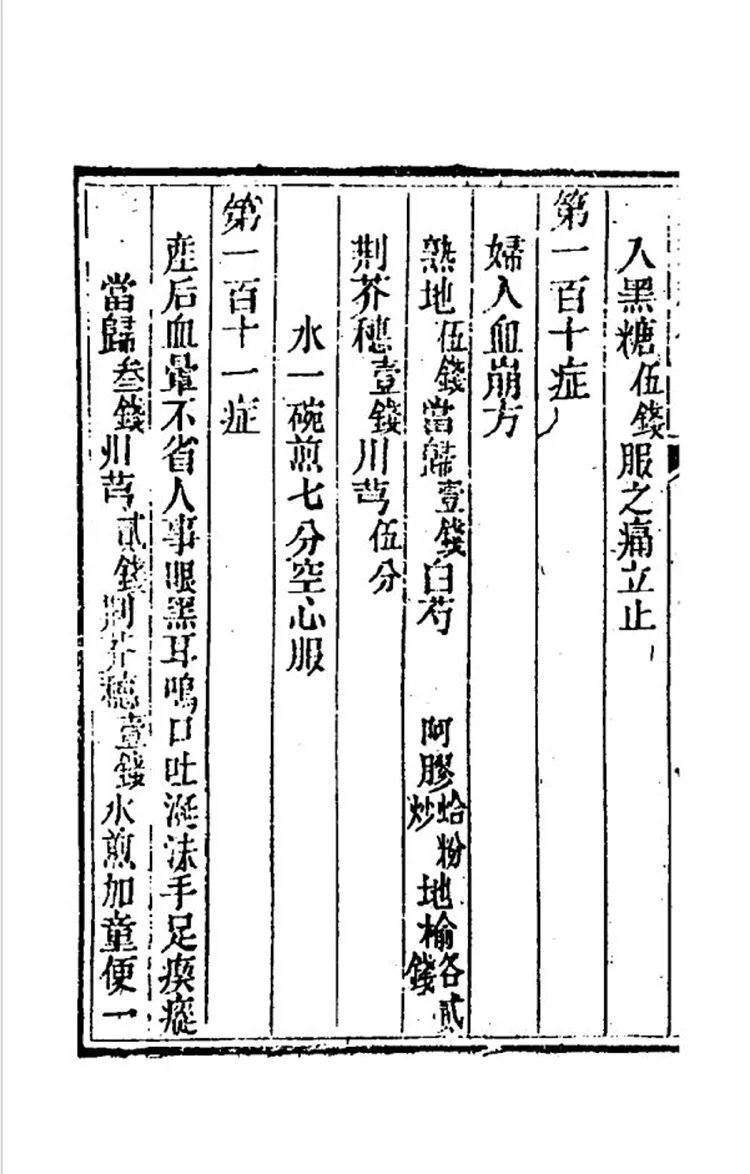 入黑糖伍錢服之痛立止
第一百十症
婦人血崩方
熟地伍錢當歸壹錢白芍 阿膠蛤粉炒地榆各貳錢
荆芥穗壹錢川芎伍分
水一碗煎七分空心服
第一百十一症
產后血暈不省人事眼黑耳鳴口吐涎沫手足瘈瘲
當歸叁錢川芎貳錢荆芥穗壹錢水煎加童便一